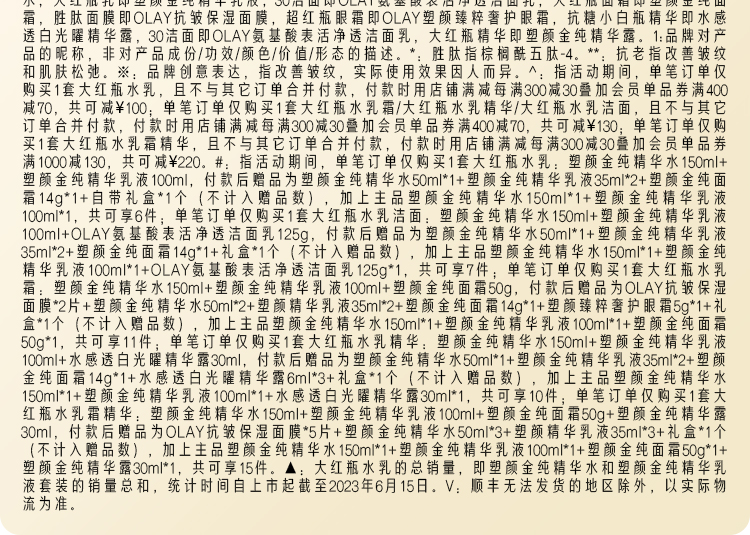 霜，胜肽面膜即OLAY抗皱保湿面膜，超红瓶眼霜即OLAY塑颜臻粹奢护眼霜，抗糖小白瓶精华即水感
透白光曜精华露，30洁面即OLAY氨基酸表活净透洁面乳，大红瓶精华即塑颜金纯精华露。1:品牌对产
品的昵称，非对产品成份/功效/颜色/价值/形态的描述。*：胜肽指棕榈酰五肽-4。**：抗老指改善皱纹
和肌肤松弛。※：品牌创意表达，指改善皱纹，实际使用效果因人而异。^：指活动期间，单笔订单仅
购买1套大红瓶水乳，且不与其它订单合并付款，付款时用店铺满减每满300减30叠加会员单品券满400
减70，共可减¥100；单笔订单仅购买1套大红瓶水乳霜/大红瓶水乳精华/大红瓶水乳洁面，且不与其它
订单合并付款，付款时用店铺满减每满300减30叠加会员单品券满400减70，共可减¥130；单笔订单仅购
买1套大红瓶水乳霜精华，且不与其它订单合并付款，付款时用店铺满减每满300减30叠加会员单品券
满1000减130，共可减¥220。#：指活动期间，单笔订单仅购买1套大红瓶水乳：塑颜金纯精华水150ml+
塑颜金纯精华乳液100ml，付款后赠品为塑颜金纯精华水50ml*1+塑颜金纯精华乳液35ml*2+塑颜金纯面
霜14g*1+自带礼盒*1个（不计入赠品数），加上主品塑颜金纯精华水150ml*1+塑颜金纯精华乳液
100ml*1，共可享6件；单笔订单仅购买1套大红瓶水乳洁面：塑颜金纯精华水150ml+塑颜金纯精华乳液
100ml+OLAY氨基酸表活净透洁面乳125g，付款后赠品为塑颜金纯精华水50ml*1+塑颜金纯精华乳液
35ml*2+塑颜金纯面霜14g*1+礼盒*1个（不计入赠品数），加上主品塑颜金纯精华水150ml*1+塑颜金纯
精华乳液100ml*1+OLAY氨基酸表活净透洁面乳125g*1，共可享7件；单笔订单仅购买1套大红瓶水乳
霜：塑颜金纯精华水150ml+塑颜金纯精华乳液100ml+塑颜金纯面霜50g，付款后赠品为OLAY抗皱保湿
面膜*2片+塑颜金纯精华水50ml*2+塑颜精华乳液35ml*2+塑颜金纯面霜14g*1+塑颜臻粹奢护眼霜5g*1+礼
盒*1个（不计入赠品数），加上主品塑颜金纯精华水150ml*1+塑颜金纯精华乳液100ml*1+塑颜金纯面霜
50g*1，共可享11件；单笔订单仅购买1套大红瓶水乳精华：塑颜金纯精华水150ml+塑颜金纯精华乳液
100ml+水感透白光曜精华露30ml，付款后赠品为塑颜金纯精华水50ml*1+塑颜金纯精华乳液35ml*2+塑颜
金纯面霜14g*1+水感透白光曜精华露6ml*3+礼盒*1个（不计入赠品数），加上主品塑颜金纯精华水
150ml*1+塑颜金纯精华乳液100ml*1+水感透白光曜精华露30ml*1，共可享10件；单笔订单仅购买1套大
红瓶水乳霜精华：塑颜金纯精华水150ml+塑颜金纯精华乳液100ml+塑颜金纯面霜50g+塑颜金纯精华露
30ml，付款后赠品为OLAY抗皱保湿面膜*5片+塑颜金纯精华水50ml*3+塑颜精华乳液35ml*3+礼盒*1个
（不计入赠品数），加上主品塑颜金纯精华水150ml*1+塑颜金纯精华乳液100ml*1+塑颜金纯面霜50g*1+
塑颜金纯精华露30ml*1，共可享15件。▲：大红瓶水乳的总销量，即塑颜金纯精华水和塑颜金纯精华乳
液套装的销量总和，统计时间自上市起截至2023年6月15日。V：顺丰无法发货的地区除外，以实际物
流为准。